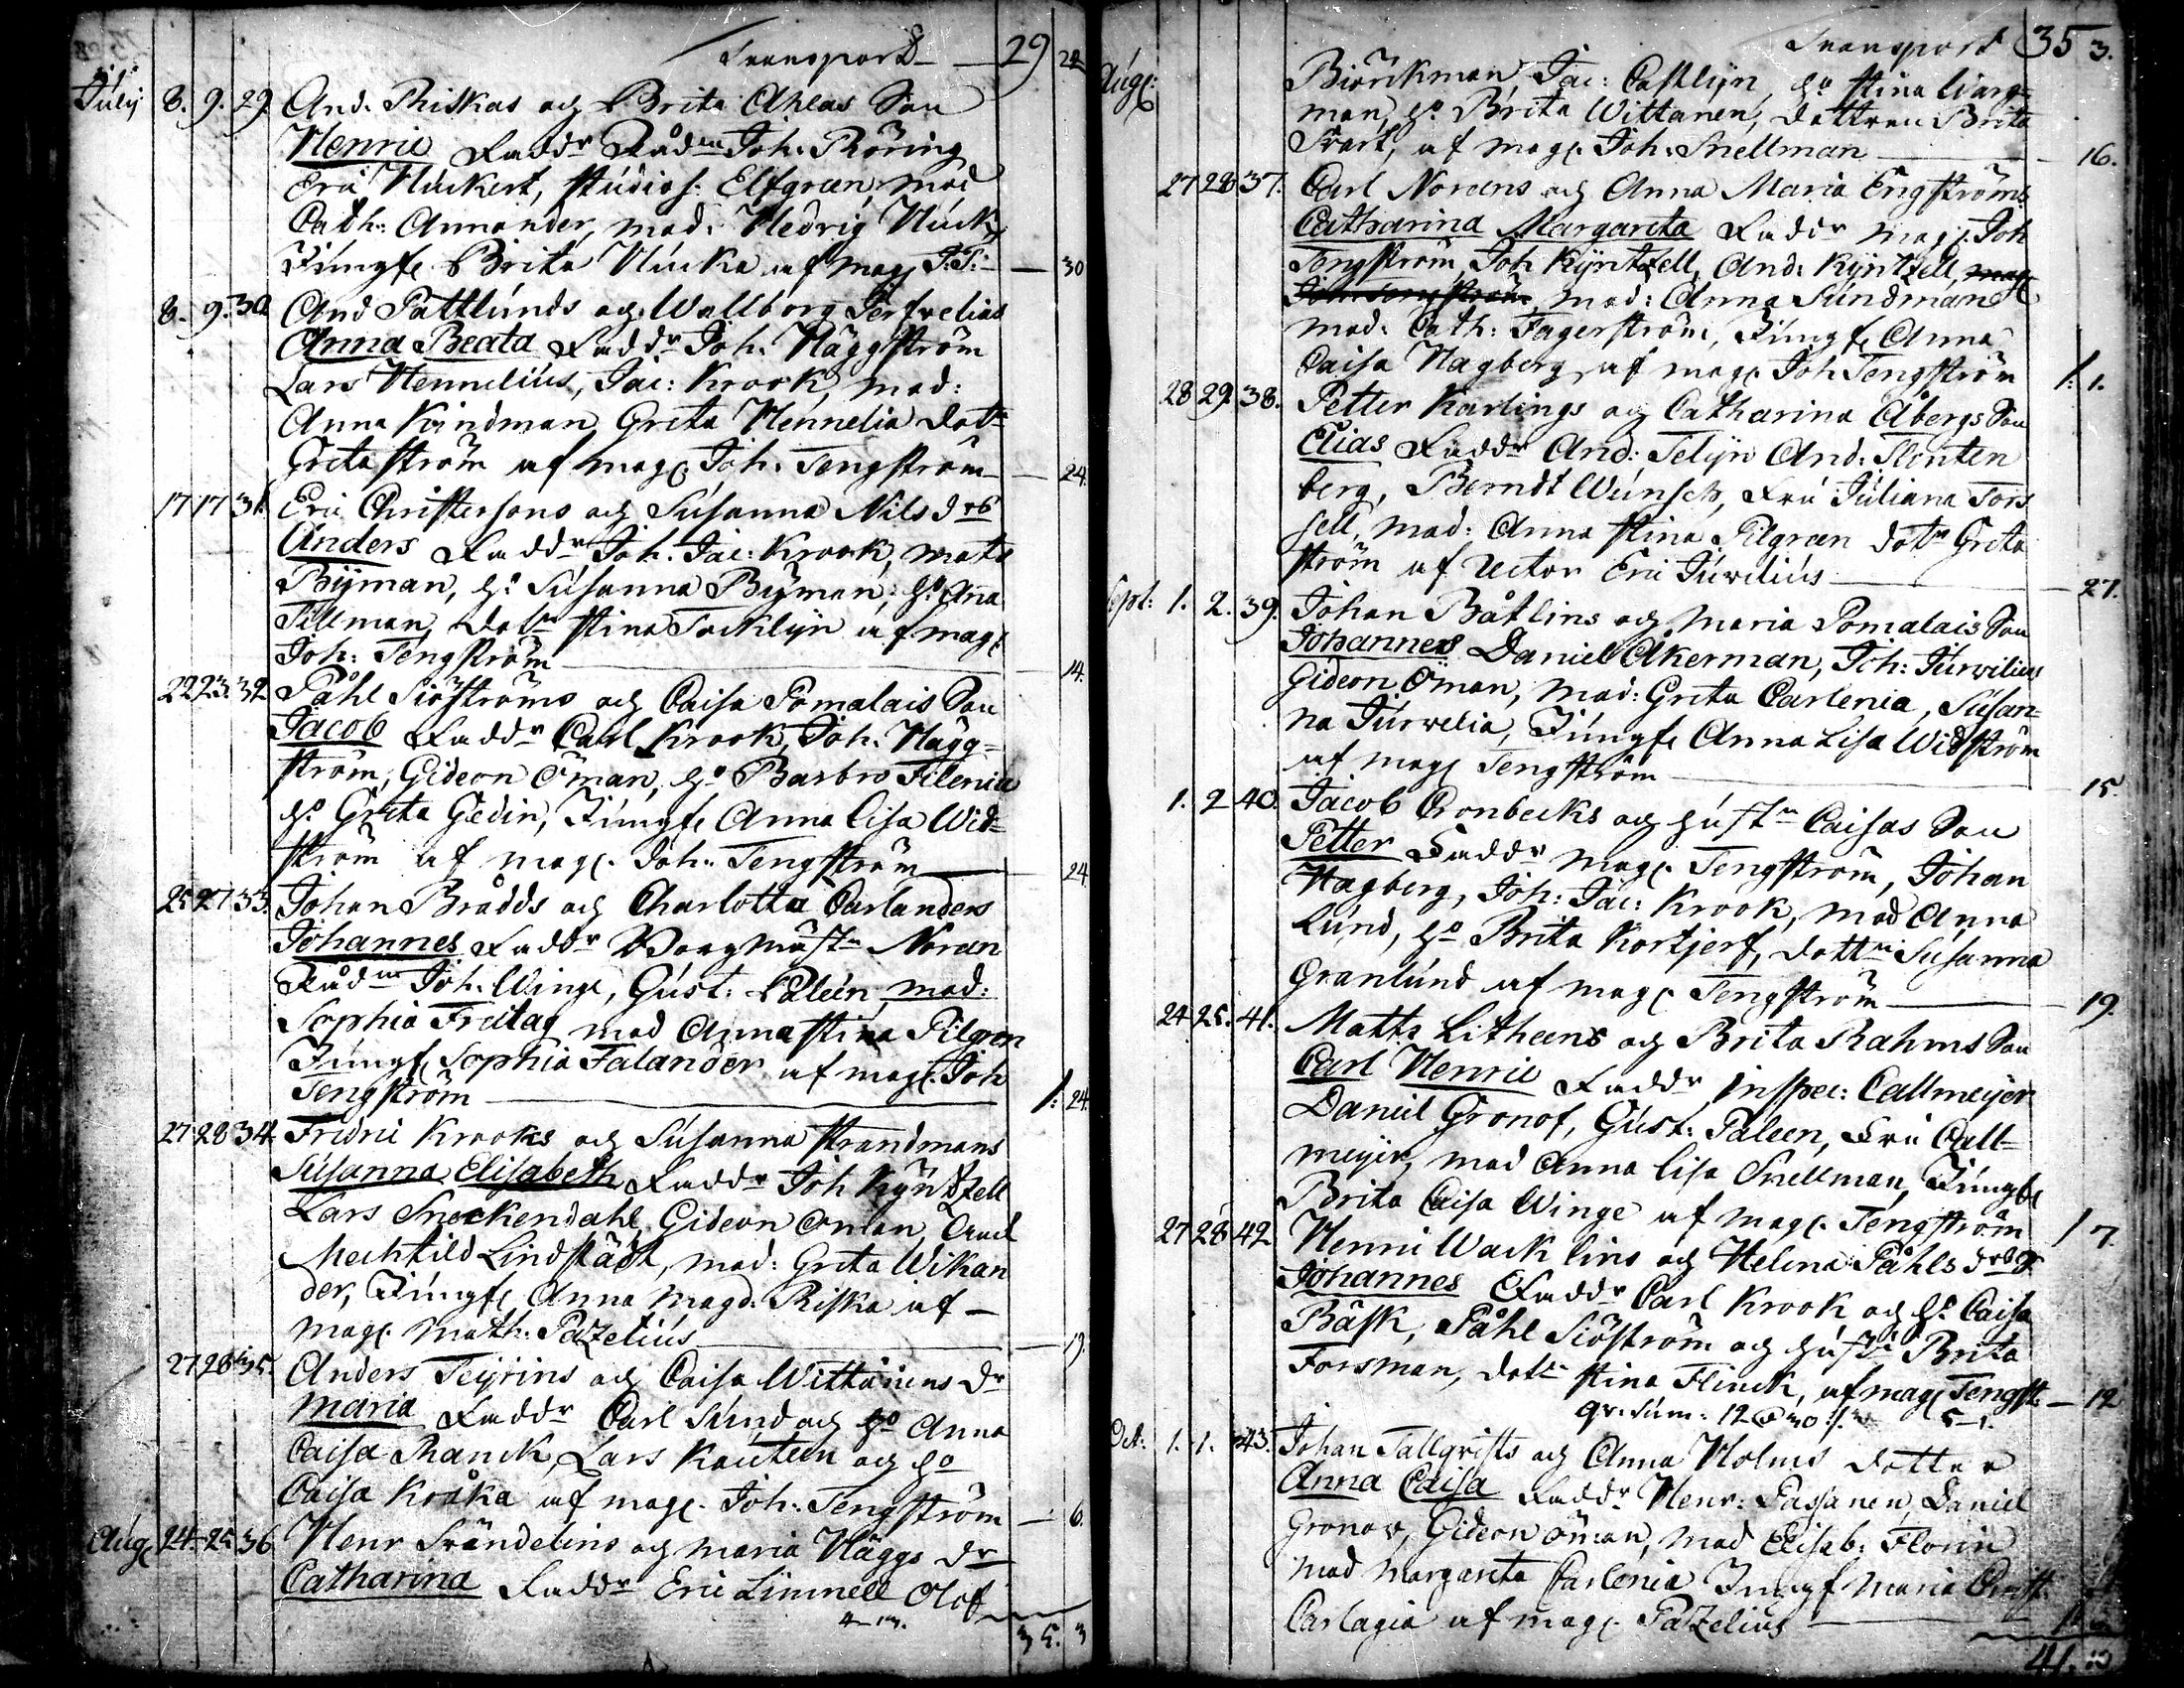 Transport — 29 22
July 8. 9. 29 And. Riskas och Brita Ahlas Son
Henric Faddr Rådm Joh. Röring
Fru Huckert, studios: Elfgreen, mad
Cath: Annander, mad: Hedvig Huck
Jungf. Brita Hucka af mag. — 30
8. 9. 30 And Pattlunds och Wallborg Jerfvelias
Anna Beata Faddr Joh. Häggström
Lars Hennelius, Jac: Krook, mad:
Anna Kindman Greta Hennelia dotr
Greta ström af mag. Joh. Tengström — 24.
17 17 31 Eric Christersons och Susanna Nils drs
Anders Faddr Joh. Jac: Krook, mats
Byman, h. Susanna Byman, h. Anna
Tillman, dotr stina Tacklyn af mag.
Joh: Tengström — 14.
22 23. 32 Påhl Siöströms och Caisa Pomalais Son
Jacob Faddr Carl Krook, Joh. Hägg=
ström, Gideon Öman, ho Barbro Filenia
ho Greta Gedin, Jungf. Anna Lisa Wid=
ström af mag. Joh. Tengström — 24
25 27 33. Johan Brådds och Charlotta Carlanders
Johannes Faddr Waagmästn Noreen
Rådm Joh. Winge, Gust: Paleen, mad:
Sophia Freitag mad Anna stina Pilgren
Jungf. Sophia Falander af mag. Joh
Tengström — 1: 24.
27 28 34. Fridric Krooks och Susanna Strandmans
Susanna Elisabeth Faddr Joh Kyntzell
Lars Sneckendahl Gideon Öman
Mechtild Lindstädt, mad: Greta Wikan
der, Jungf. Anna Magd. Riska af —
mag. Math: Pazelius — 19
27 28 35. Anders Teirins och Caisa Wittanens Dr
Maria Faddr Carl Sund och ho Anna
Caisa Ranck, Lars Kauteen och ho
Caisa Kråka af mag. Joh: Tengström — 6.
Aug. 24 25 36 Henr Srändelins och Maria Häggs dr
Catharina Faddr Eric Limnell Olof
35. 3
Transport 35 3.
Aug: Biörkman, Jac: Castlyn, ho stina Warg=
man, ho Brita Wittanen, dottren Brita
Svart, af mag. Joh: Snellman — 16.
27 28 37. Carl Noreens och Anna Maria Engströms
Catharina Margareta Faddr mag. Joh
Tengström, Joh Kyntzell, And: Kyntzell, mag
Joh: Tengström, mad: Anna Sundman
mad: Cath: Fagerström, Jungf. Anna
Caisa Hagberg, af mag. Joh Tengström 1: 1.
28 29. 38. Petter Karlings och Catharina Åbergs Son
Elias Faddr And: Telyn And: Slonten
berg, Berndt Wunsch, Fru Juliana Tors
sell, mad: Anna stina Pilgreen dotr Greta
ström af Rector Eric Jurvelius — 27.
Sept: 1. 2. 39. Johan Båtlins och Maria Pomalais Son
Johannes Daniel Åkerman, Joh: Jurvelius
Gideon Öman, mad: Greta Carlenia, Susan=
na Jurvelia, Jungf. Anna Lisa Widström
af mag. Tengström — 15.
1. 2 40. Jacob Cronbecks och hustr Caisas Son
Petter Faddr mag. Tengström, Johan
Hagberg, Joh: Jac: Krook, mad Anna
Lund, ho Brita Kortjerf, dottr Susanna
Granlund af mag. Tengström — 19.
24 25. 41. Matts Litheens och Brita Rahms Son
Carl Henric Faddr Inspec: Callmeijer
Daniel Gronof, Gust: Paleen, Fru Call=
meijer, mad Anna Lisa Snellman, Jungf.
Brita Caisa Winge af mag. Tengström 1 7.
27 28 42 Henric Wacklins och Helena Påhls drs
Johannes Faddr Carl Krook och h. Caisa
Bäsk, Påhl Siöström och hustr Brita
Forsman, dotr stina Flinck, af mag. Tengst. — 12
Johan Tallqvists och Anna Holms dotter
Oct: 1. 1. 43. Anna Caisa Faddr Henr: Passanen, Daniel
Gronow, Gideon Öman, mad Elisab: Florin
mad Margareta Carlenia Jungf Maria
Carlagia af mag. Pazelius —
41.